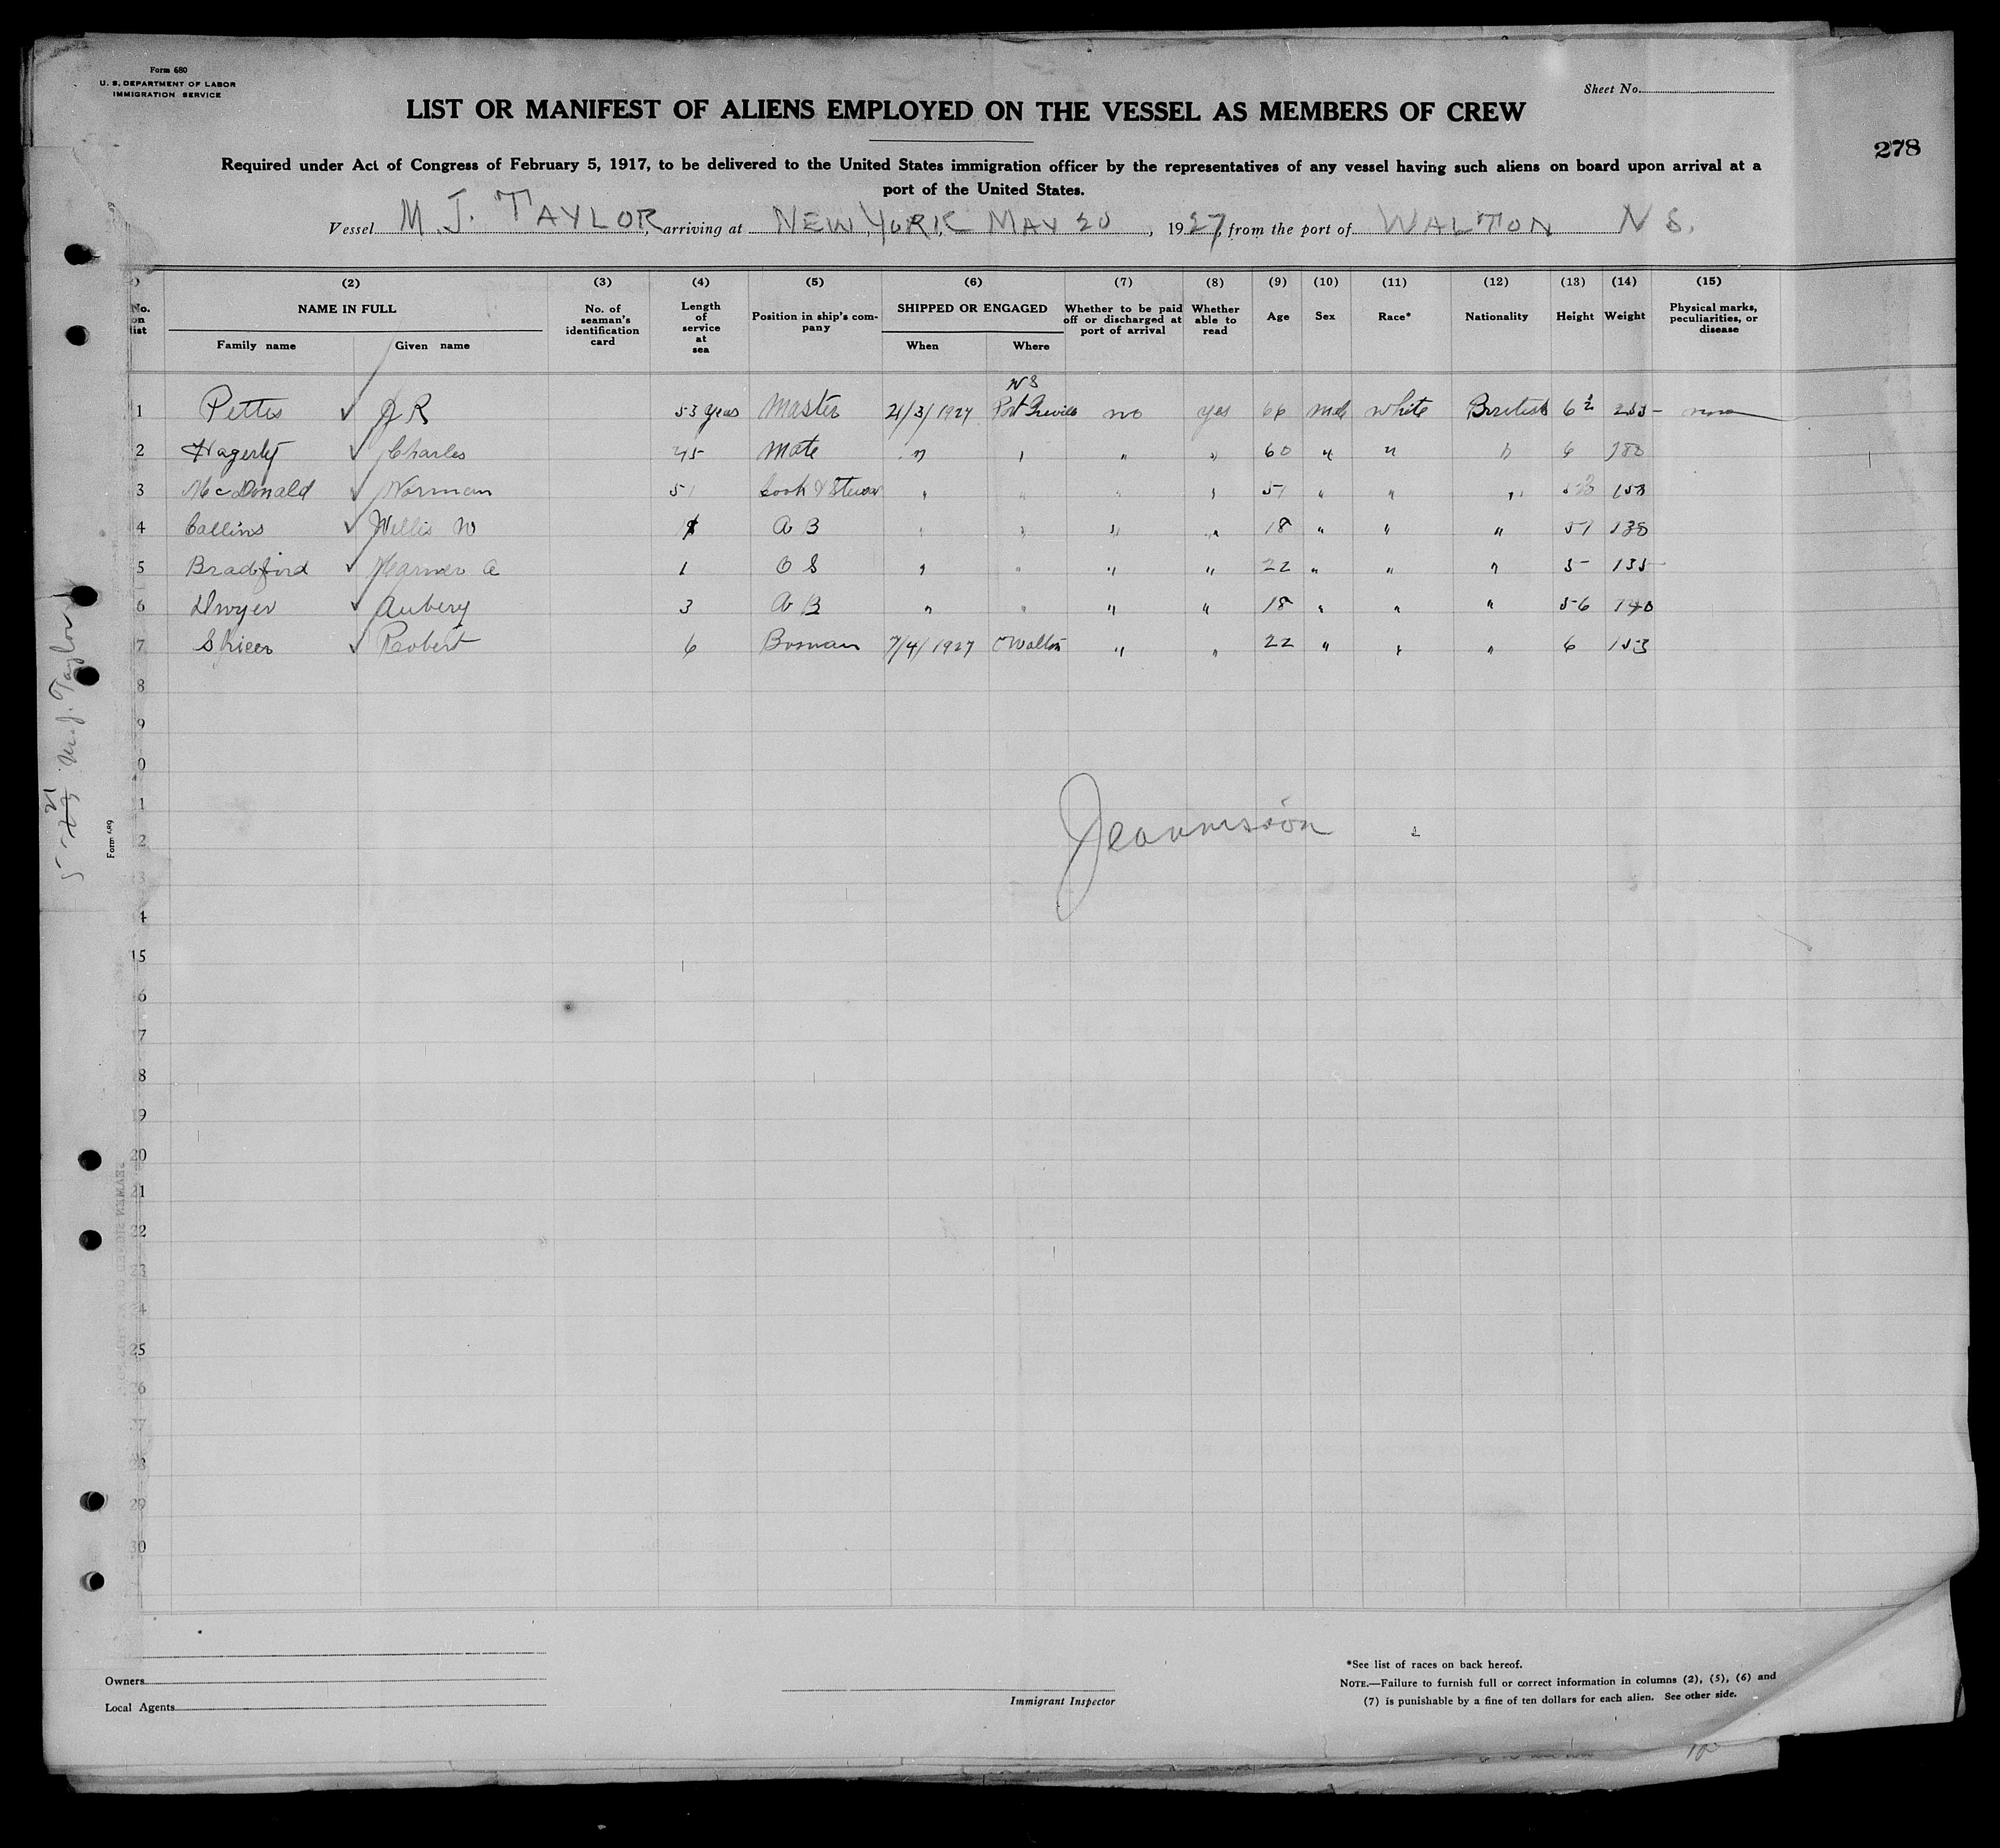 Form 680
U. S. DEPARTMENT OF LABOR
IMMIGRATION SERVICE
Sheet No.
LIST OR MANIFEST OF ALIENS EMPLOYED ON THE VESSEL AS MEMBERS OF CREW
278
Required under Act of Congress of February 5, 1917, to be delivered to the United States immigration officer by the representatives of any vessel having such aliens on board upon arrival at a
port of the United States.
Vessel M. J. TAYLOR, arriving at NEW YORK MAY 20, 1927, from the port of WALTON N S.
(2) (3) (4) (5) (6) (7) (8) (9) (10) (11) (12) (13) (14) (15)
No. on list NAME IN FULL No. of seaman's identification card Length of service at sea Position in ship's company SHIPPED OR ENGAGED Whether to be paid off or discharged at port of arrival Whether able to read Age Sex Race* Nationality Height Weight Physical marks, peculiarities, or disease
Family name Given name When Where
N S
1 Pettis ✓ J R 53 years Master 21/3/1927 Port Greville no yes 66 male white British 6 2
2 Hagerty ✓ Charles 45 Mate " " " " 60 " " " 6 180
3 McDonald ✓ Norman 51 Cook & Steward " " " " 51 " " " 158
4 Collins ✓ Willis W A B " " " " 18 " " " 5 7 138
5 Bradford ✓ A 1 O S " " " " 22 " " " 5 135
6 Dwyer ✓ Aubery 3 A B " " " " 18 " " " 5 6 140
7 Spicer ✓ Robert 6 Bosman 7/4/1927 Walton " " 22 " " " 6 153
8
9
0
1
2
3
4
15
6
7
8
9
20
21
22
23
4
25
26
27
28
29
30
5 21 M. J. Taylor
Form 689
Owners
Local Agents
Immigrant Inspector
*See list of races on back hereof.
NOTE.—Failure to furnish full or correct information in columns (2), (5), (6) and
(7) is punishable by a fine of ten dollars for each alien. See other side.